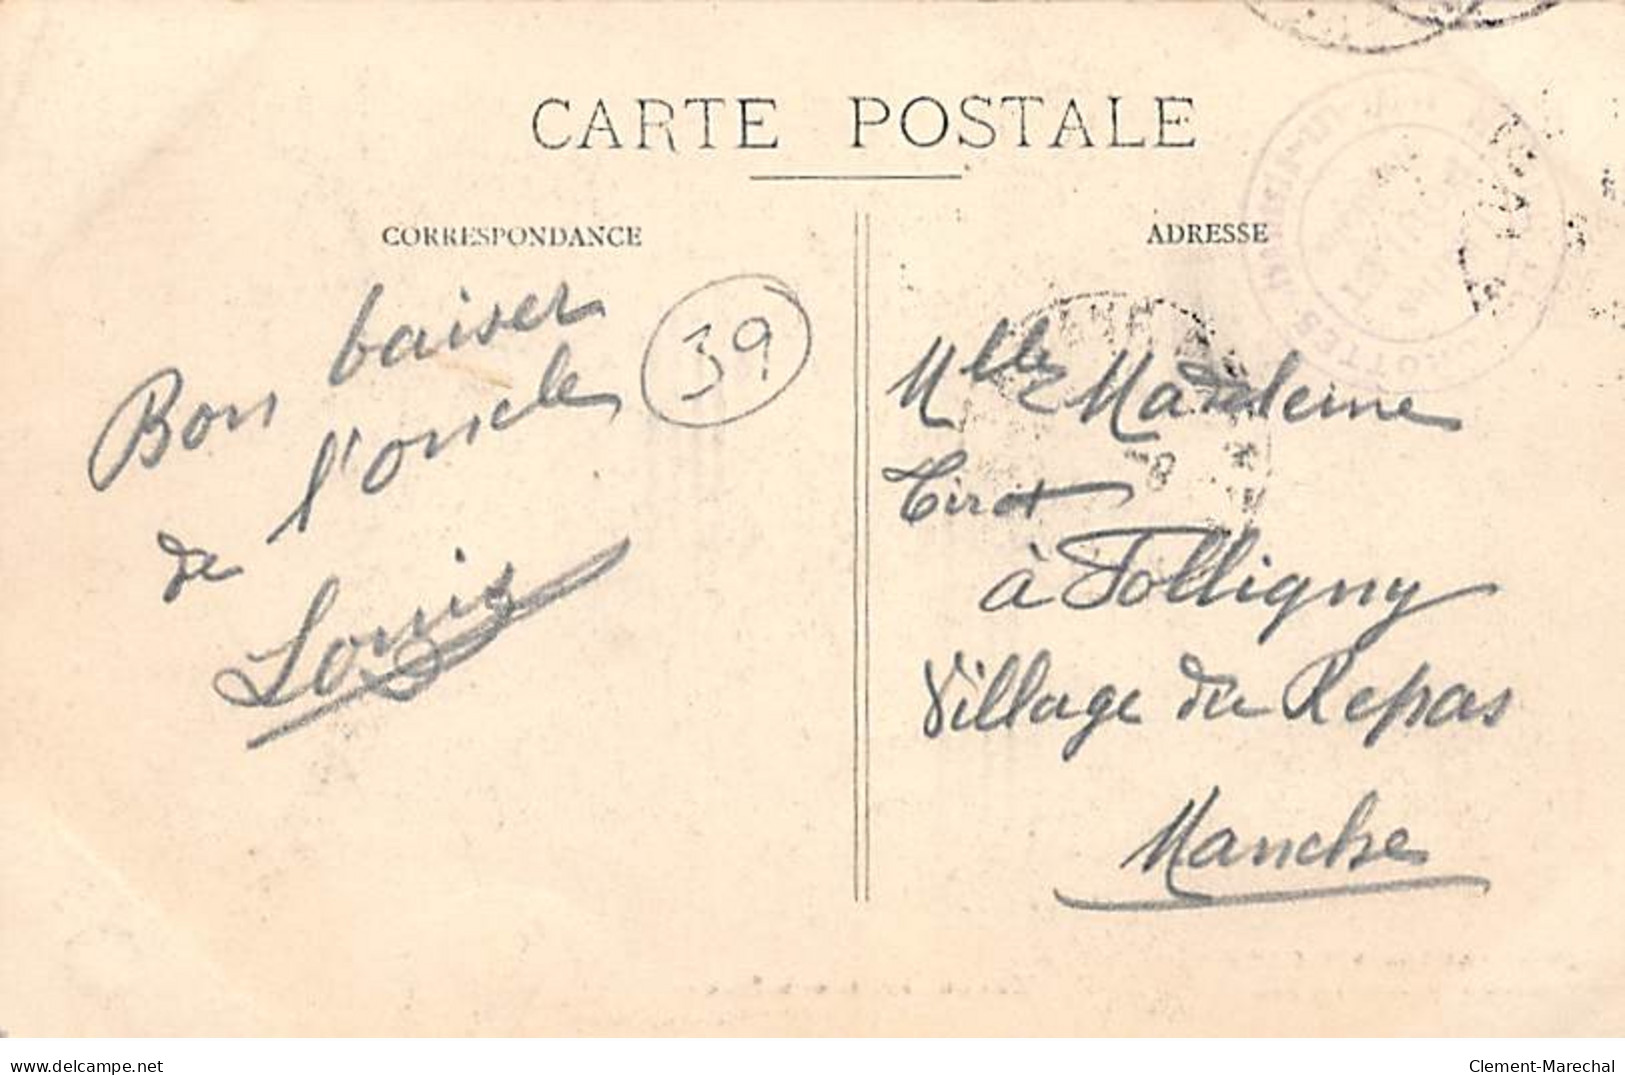 CARTE POSTALE
CORRESPONDANCE
ADRESSE
Bon baiser
de l'oncle
Louis
39
Mlle Madeleine
Tirot
à Folligny
Village du Repas
Manche
GROTTES
www.delcampe.net
Clement-Marechal